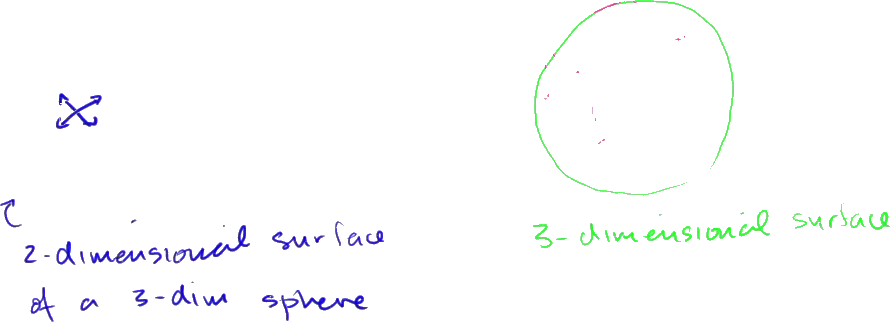 2-dimensional surface
of a 3-dim sphere
3-dimensional surface